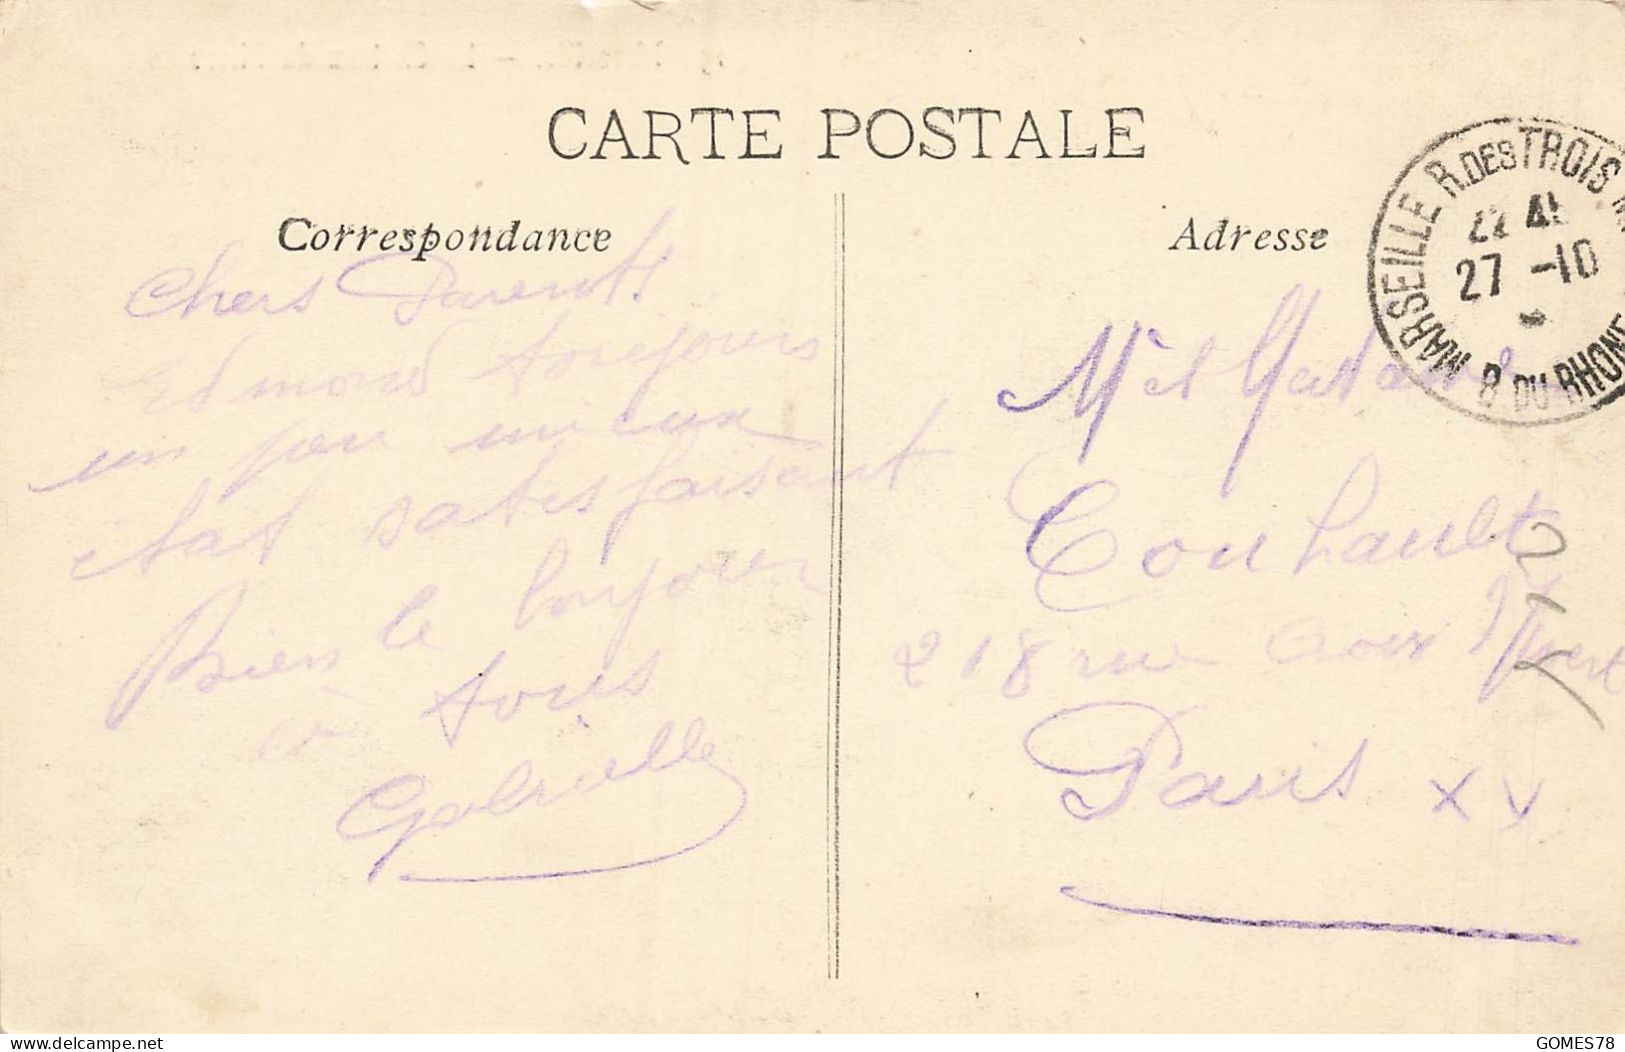 CARTE POSTALE
Correspondance
Chers Parents
Edmond toujours
un peu mieux
état satisfaisant
Bien le bonjour
à tous
Gabrielle
Adresse
Mr et Madame
Couhault
218 rue Croix Nivert
Paris XV
MARSEILLE R. DES TROIS
27 -10
B DU RHONE
delcampe.net
GOMES78